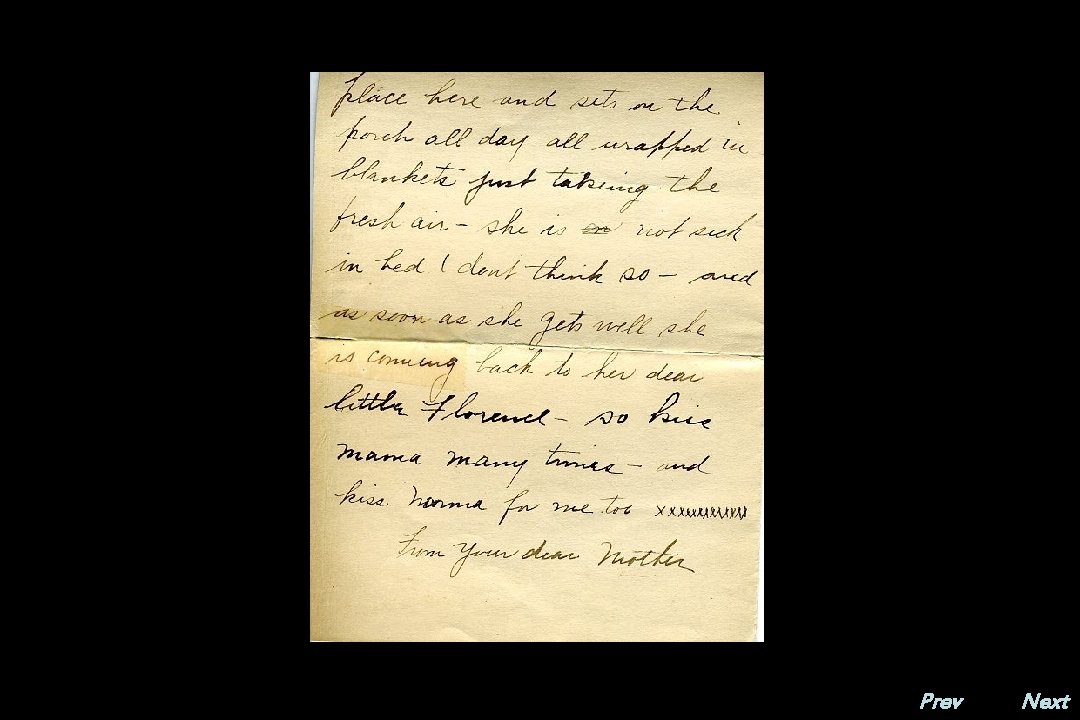 place here and sets on the
porch all day all wrapped in
blankets just taking the
fresh air – she is on not sick
in bed I dont think so – and
as soon as she gets well she
is coming back to her dear
little Florence – so kiss
mama many times – and
kiss Norma for me too xxxxxxxxxxx
From your dear Mother
Prev Next